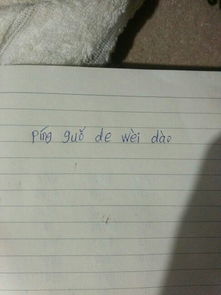 píng guǒ de wèi dào